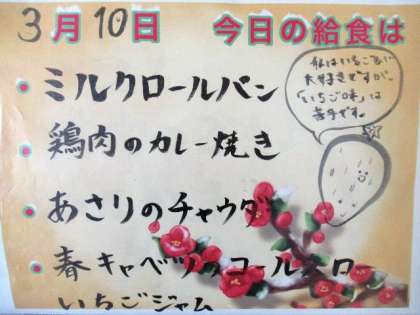 3月10日 今日の給食は
私はいちごが
大好きですが、
「いちご味」は
苦手です。
・ミルクロールパン
・鶏肉のカレー焼き
・あさりのチャウダ
・春キャベツのコールスロ
いちごジャム